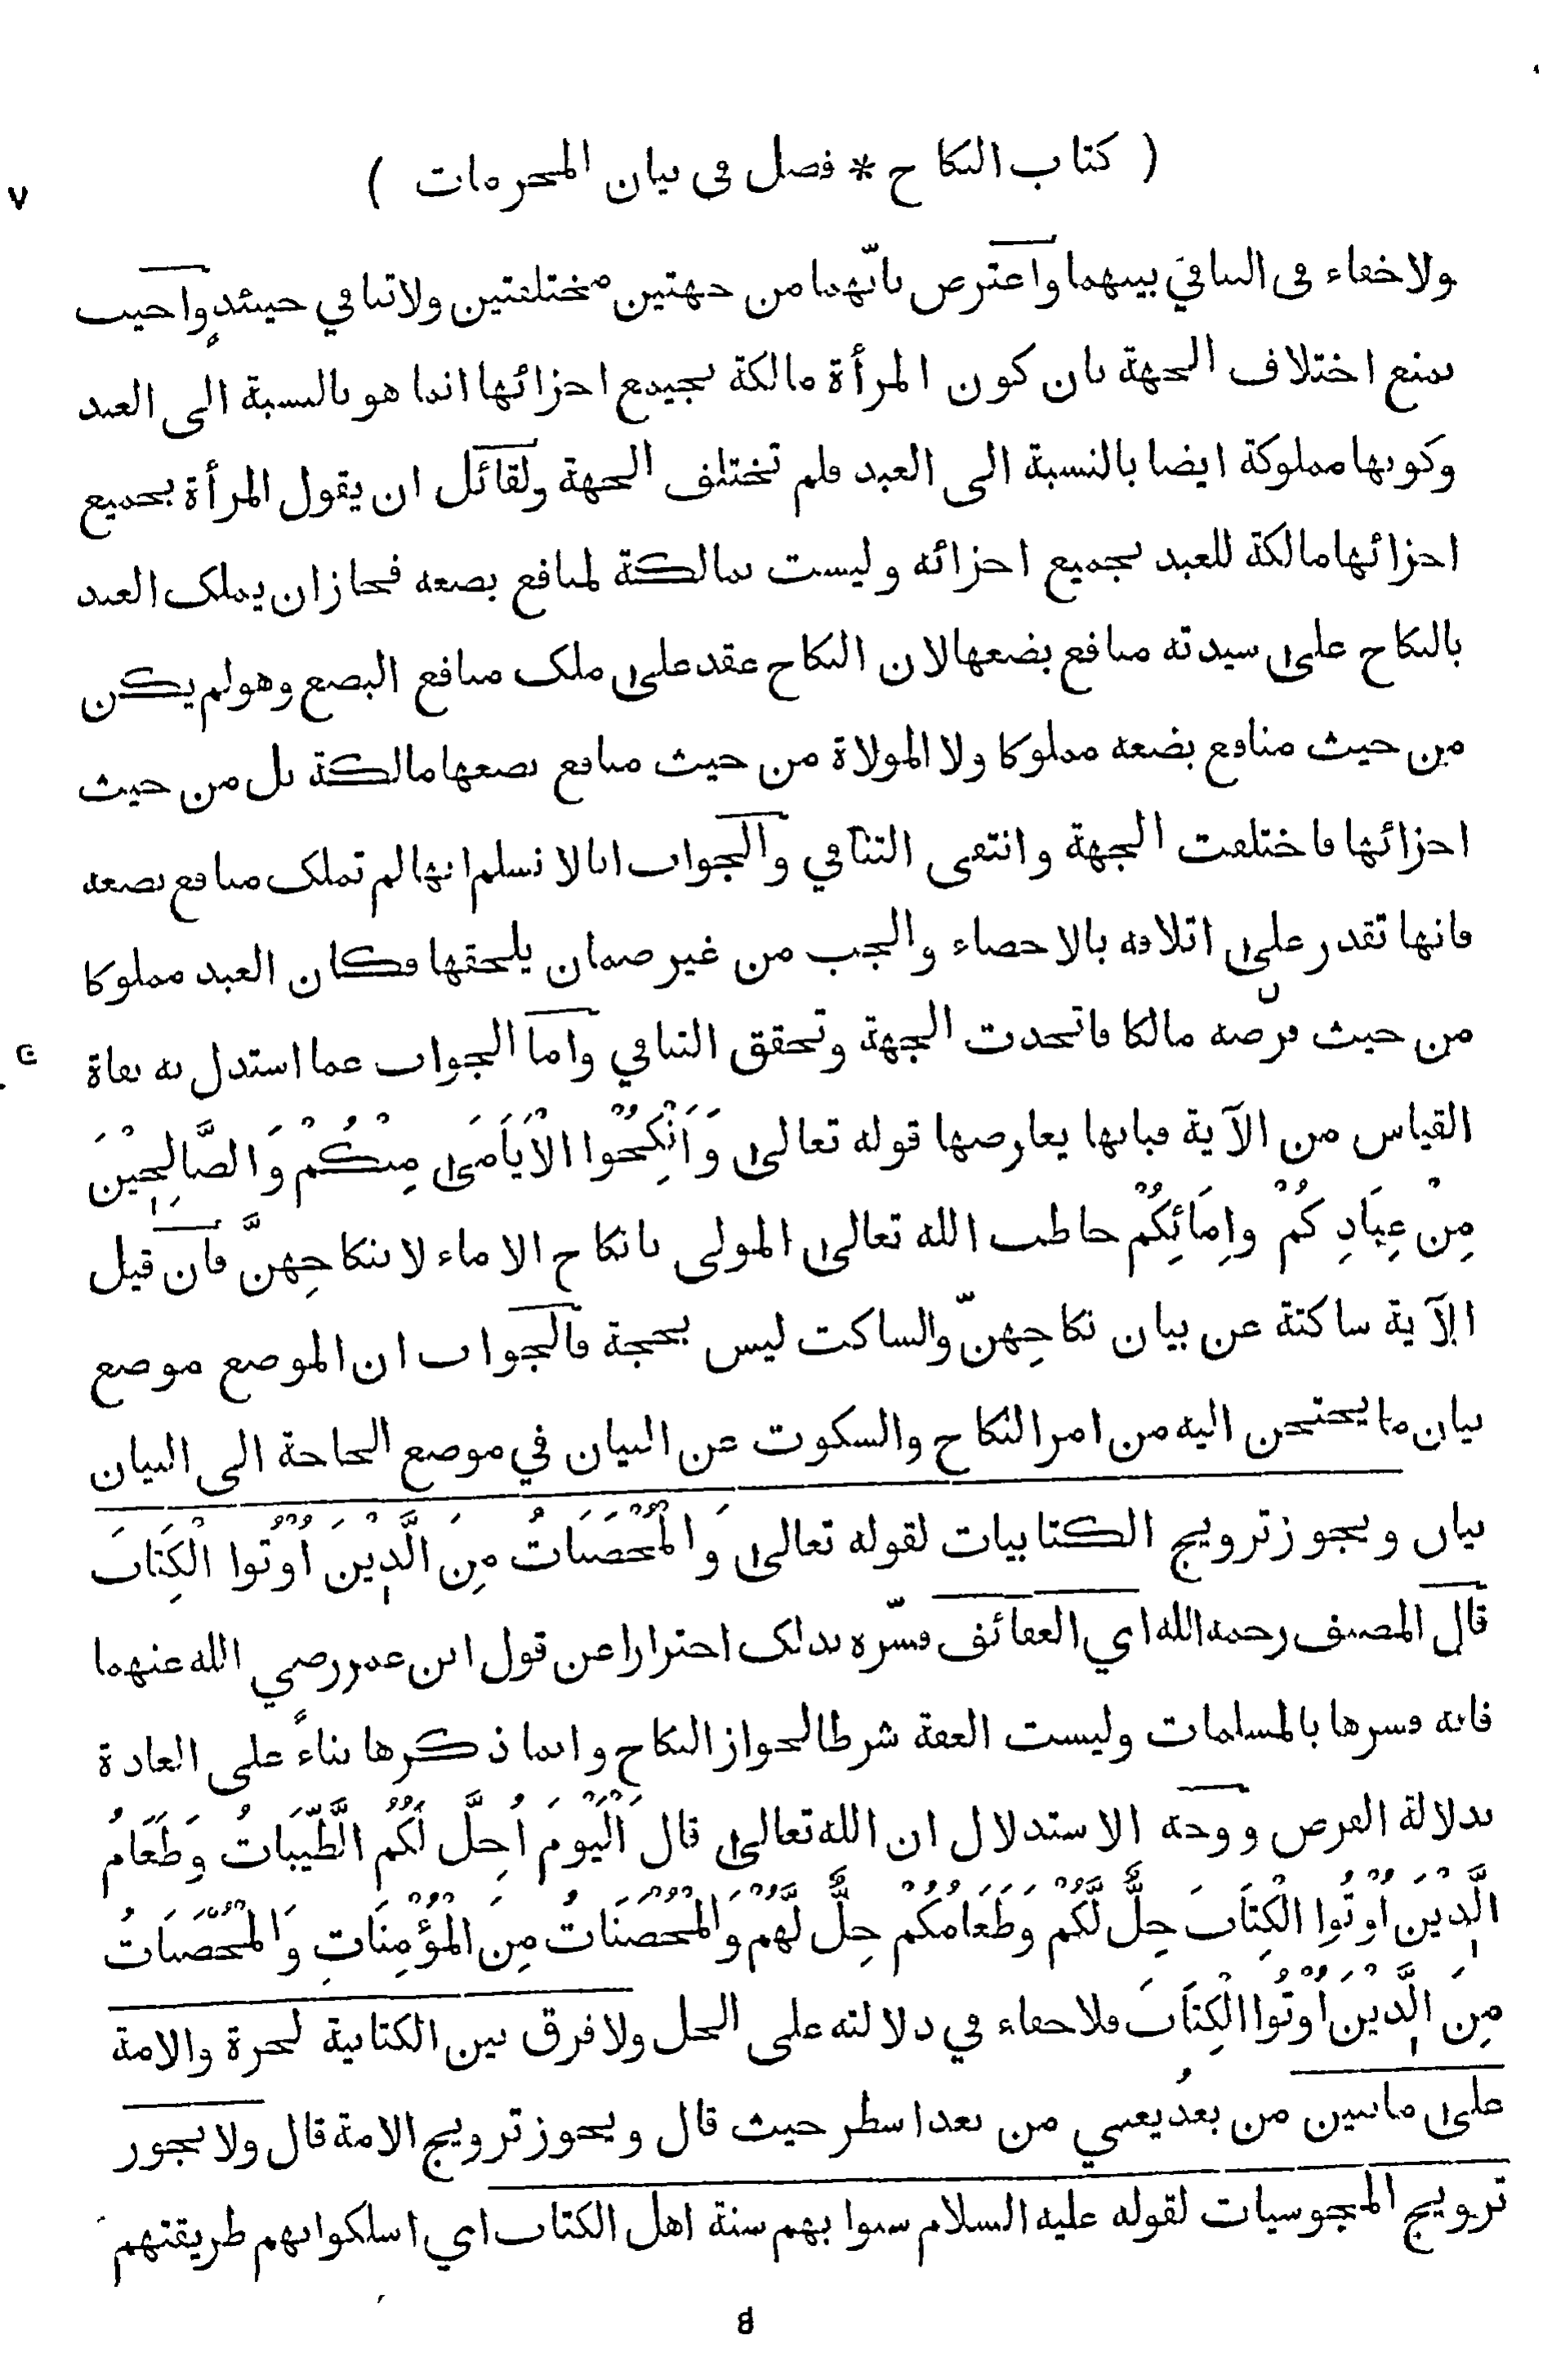 ( كتاب النكاح * فصل في بيان المحرمات )
٧
ولا خفاء في التنافي بينهما واعترض بانّهما من جهتين مختلفتين ولا تنافي حينئذٍ واجيب
بمنع اختلاف الجهة بان كون المرأة مالكة بجميع اجزائها انما هو بالنسبة الى العبد
وكونها مملوكة ايضا بالنسبة الى العبد فلم تختلف الجهة ولقائل ان يقول المرأة بجميع
اجزائها مالكة للعبد بجميع اجزائه وليست بمالكة لمنافع بضعه فجاز ان يملك العبد
بالنكاح على سيدته منافع بضعها لان النكاح عقد على ملك منافع البضع وهو لم يكن
من حيث منافع بضعه مملوكا ولا المولاة من حيث منافع بضعها مالكة بل من حيث
اجزائها فاختلفت الجهة وانتفى التنافي والجواب انا لا نسلم انها لم تملك منافع بضعه
فانها تقدر على اتلافه بالاخصاء والجب من غير ضمان يلحقها فكان العبد مملوكا
من حيث فرضه مالكا فاتحدت الجهة وتحقق التنافي واما الجواب عما استدل به نفاة
القياس من الآية فبانها يعارضها قوله تعالى وَاَنْكِحُوا الْاَيَامَى مِنْكُمْ وَالصَّالِحِيْنَ
مِنْ عِبَادِكُمْ وَاِمَائِكُمْ خاطب الله تعالى المولى بانكاح الاماء لا بنكاحِهنَّ فان قيل
الآية ساكتة عن بيان نكاحِهنّ والساكت ليس بحجة فالجواب ان الموضع موضع
بيان ما يحتجن اليه من امر النكاح والسكوت عن البيان في موضع الحاجة الى البيان
بيان ويجوز ترويج الكتابيات لقوله تعالى وَالْمُحْصَنَاتُ مِنَ الَّذِيْنَ اُوْتُوا الْكِتَابَ
قال المصنف رحمه الله اي العفائف فسّره بذلك احترازا عن قول ابن عمر رضي الله عنهما
فانه فسرها بالمسلمات وليست العفة شرطا لجواز النكاح وانما ذكرها بناءً على العادة
بدلالة الغرض ووجه الاستدلال ان الله تعالى قال اَلْيَوْمَ اُحِلَّ لَكُمُ الطَّيِّبَاتُ وَطَعَامُ
الَّذِيْنَ اُوْتُوا الْكِتَابَ حِلٌّ لَّكُمْ وَطَعَامُكُمْ حِلٌّ لَّهُمْ وَالْمُحْصَنَاتُ مِنَ الْمُؤْمِنَاتِ وَالْمُحْصَنَاتُ
مِنَ الَّذِيْنَ اُوْتُوا الْكِتَابَ فلا خفاء في دلالته على الحل ولا فرق بين الكتابية لحرة والامة
على ما نبين من بعدُ يعني من بعد اسطر حيث قال ويجوز ترويج الامة قال ولا يجوز
ترويج المجوسيات لقوله عليه السلام سنوا بهم سنة اهل الكتاب اي اسلكوا بهم طريقتهم